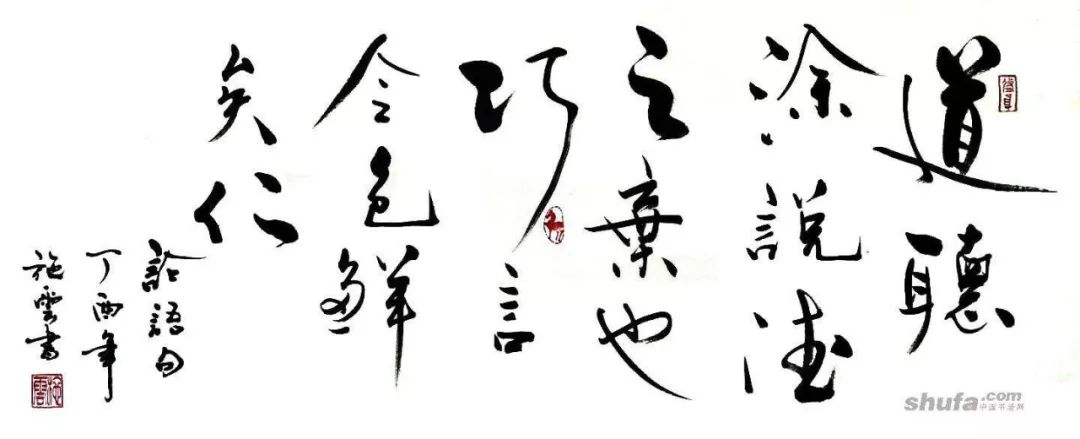 道聽
涂說德
之棄也
巧言
令色鮮
矣仁
論語句
丁酉年
施雲書
shufa.com
中国书法网